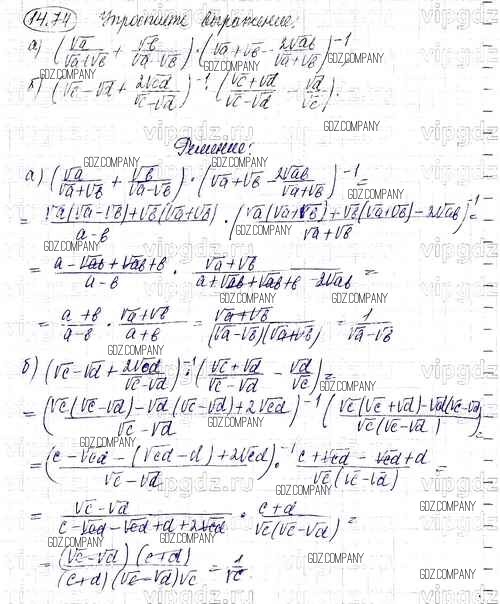 14.74 Упростите выражение:
а) (√a/(√a+√b) + √b/(√a-√b)) · (√a+√b - 2√ab/(√a+√b))^-1
б) (√c-√d + 2√cd/(√c-√d))^-1 · ((√c+√d)/(√c-√d) - √d/√c).
Решение:
а) (√a/(√a+√b) + √b/(√a-√b)) · (√a+√b - 2√ab/(√a+√b))^-1 =
= (√a(√a-√b)+√b(√a+√b))/(a-b) · ((√a(√a+√b)+√b(√a+√b)-2√ab)/(√a+√b))^-1 =
= (a-√ab+√ab+b)/(a-b) · (√a+√b)/(a+√ab+√ab+b-2√ab) =
= (a+b)/(a-b) · (√a+√b)/(a+b) = (√a+√b)/((√a-√b)(√a+√b)) = 1/(√a-√b)
б) (√c-√d + 2√cd/(√c-√d))^-1 · ((√c+√d)/(√c-√d) - √d/√c) =
= ((√c(√c-√d)-√d(√c-√d)+2√cd)/(√c-√d))^-1 · ((√c(√c+√d)-√d(√c-√d))/(√c(√c-√d))) =
= ((c-√cd-(√cd-d)+2√cd)/(√c-√d))^-1 · (c+√cd-√cd+d)/(√c(√c-√d)) =
= (√c-√d)/(c-√cd-√cd+d+2√cd) · (c+d)/(√c(√c-√d)) =
= ((√c-√d)(c+d))/((c+d)(√c-√d)√c) = 1/√c.